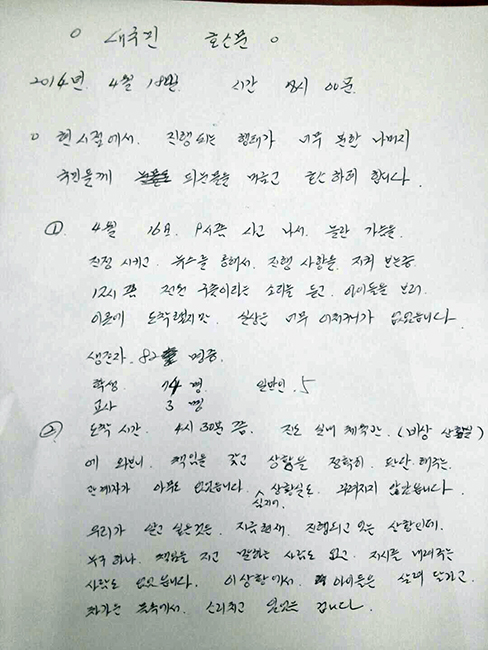 ○ 대국민 호소문 ○
2014년. 4월 18일. 시간 8시 00분.
○ 현시점에서. 진행되는 행태가 너무 분한 나머지
국민들께 피눈물을 머금고 호소하려 합니다.
① 4월 16일. 9시쯤 사고 나서. 놀란 가슴을
진정 시키고. 뉴스를 통해서. 진행 사항을 지켜 보는중
12시쯤 전원 구출이라는 소리를 듣고. 아이들을 보러.
이곳에 도착했지만. 실상은 너무 어처구니가 없었습니다.
생존자. 82 명중.
학생 74 명 일반인. 5
교사 3 명
② 도착 시간. 4시 30분쯤. 진도 실내 체육관. (비상 상황실)
에 와보니. 책임을 갖고 상황을 정확히. 판단 해주는.
관계자가 아무도 없었습니다. 심지어 상황실도. 꾸려지지 않았습니다.
우리가 알고 싶은것은. 지금 현재. 진행되고 있는 상황인데.
누구 하나. 책임을 지고 말하는 사람도 없고. 지시를 내려주는
사람도 없었습니다. 이 상황에서. 아이들은 살려 달라고.
차가운 물속에서. 소리치고 있었을 겁니다.